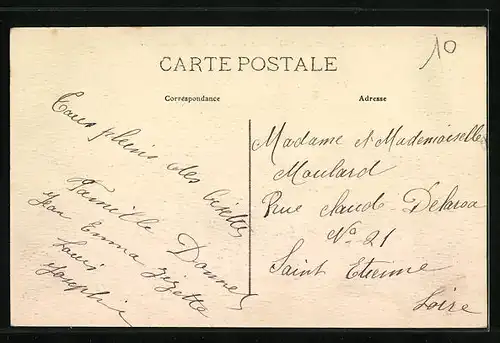 10
CARTE POSTALE
Correspondance
Adresse
pleins des
Famille Donnet
Jean Emma Zizette
Louis
Josephine
Madame et Mademoiselle
Moulard
Rue Claude Delaroa
No 21
Saint Etienne
Loire